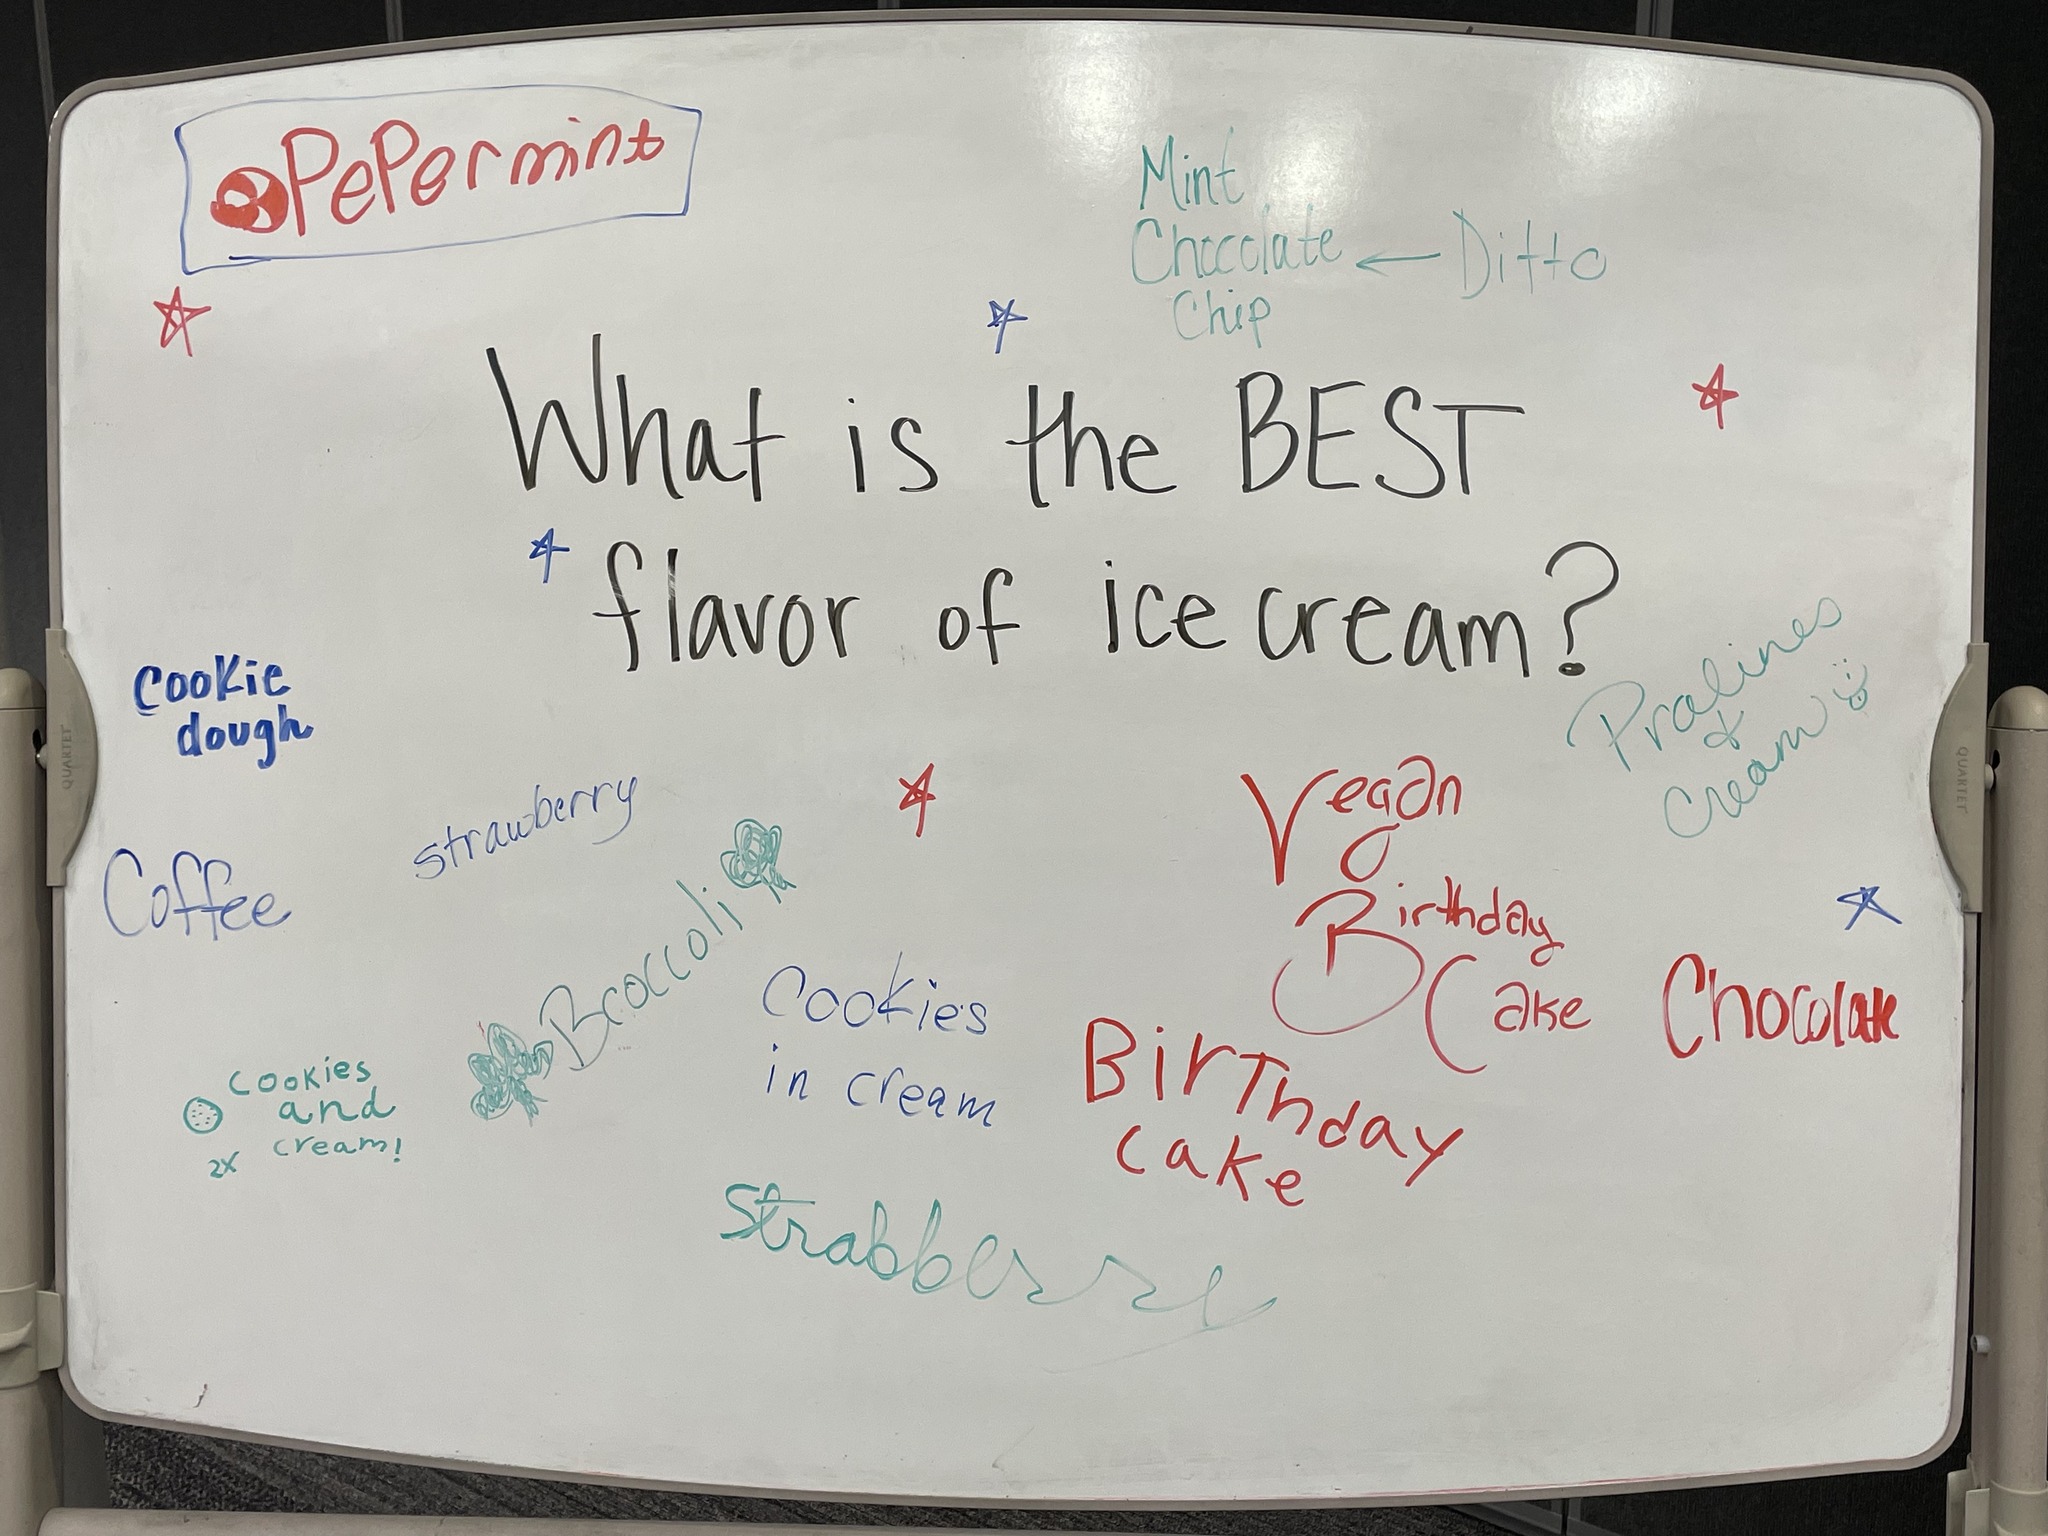 PePermint
Mint
Chocolate ← Ditto
Chip
What is the BEST
flavor of ice cream?
Cookie
dough
Pralines
&
Cream
strawberry
Vegan
Coffee
Broccoli
Birthday
Cake
Chocolate
Cookies
in cream
Birthday
cake
Cookies
and
cream!
2x
Strabberry
QUARTET
QUARTET